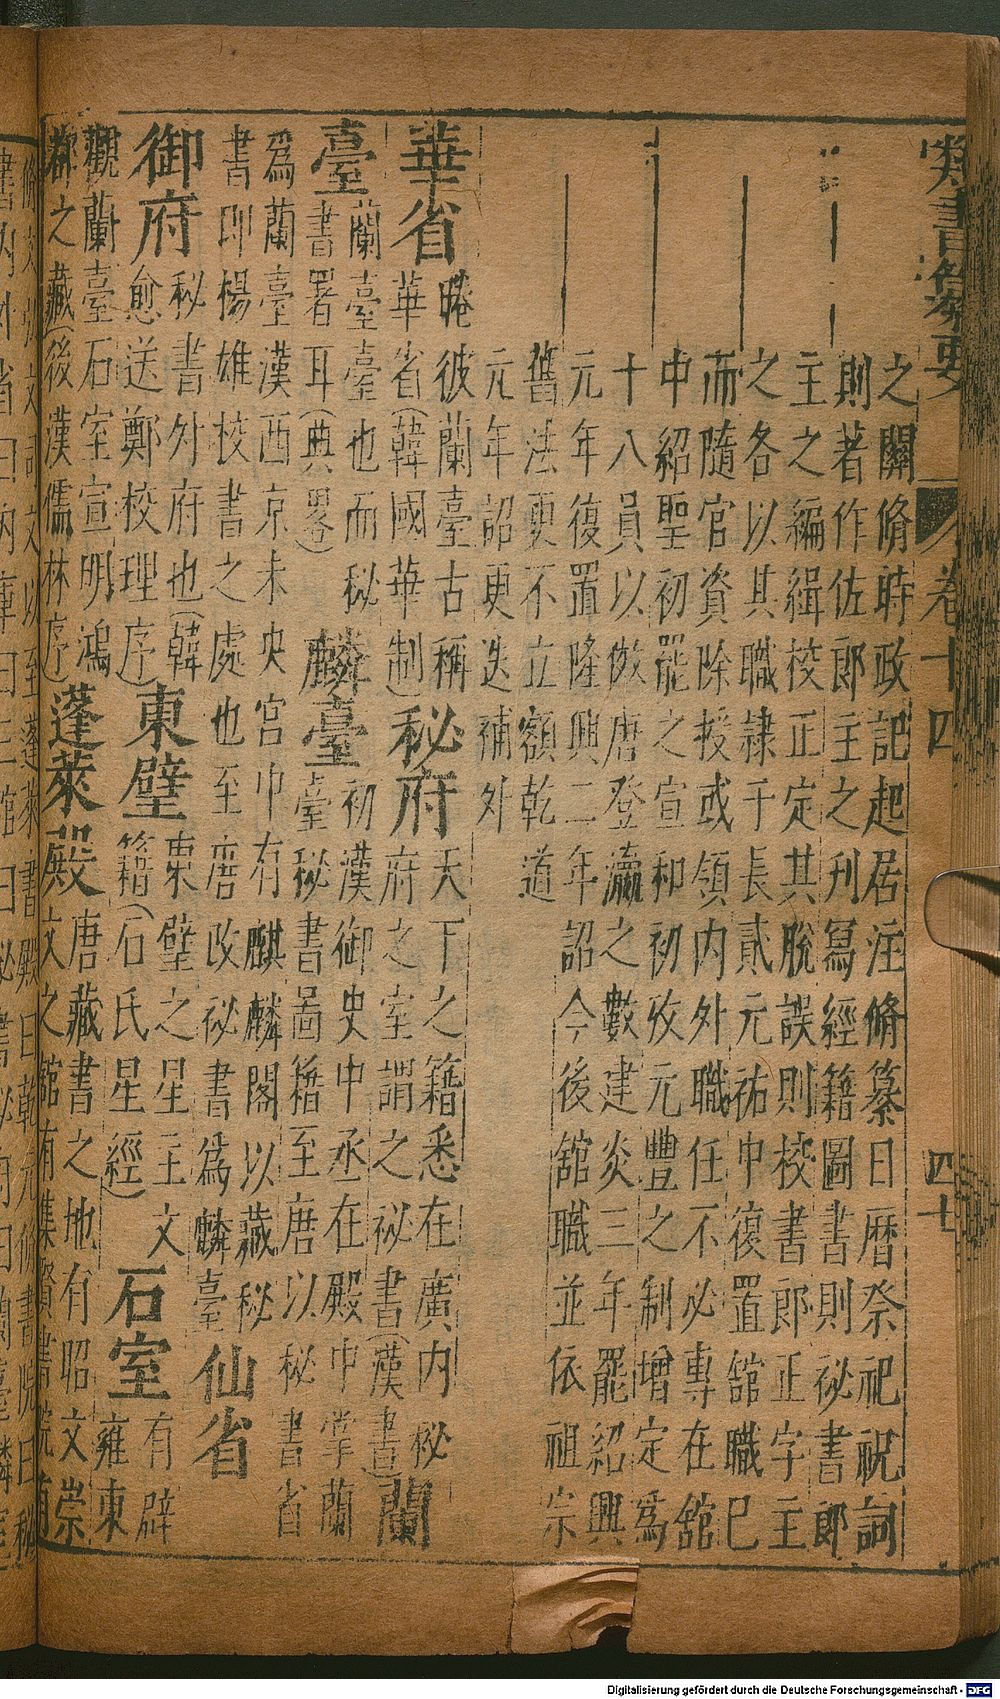 類書纂要 卷十四 四十七
之關脩時政記起居注脩纂日曆祭祀祝詞
則著作佐郎主之刋寫經籍圖書則祕書郎
主之編緝校正定其脫誤則校書郎正字主
之各以其職隷于長貳元祐中復置舘職已
而隨官資除授或領内外職任不必專在舘
中紹聖初罷之宣和初攺元豐之制增定爲
十八員以倣唐登瀛之數建炎三年罷紹興
元年復置隆興二年詔今後舘職並依祖宗
舊法更不立額乾道
元年詔更迭補外
華省 晻彼蘭臺古稱華省(韓國華制)
秘府 天下之籍悉在廣内秘府之室謂之祕書(漢書)
蘭臺 蘭臺臺也而秘書署耳(典畧)
麟臺 初漢御史中丞在殿中掌蘭臺秘書圖籍至唐以秘書省
爲蘭臺漢西京未央宮中有麒麟閣以藏秘
書即楊雄校書之處也至唐改祕書爲麟臺
仙省
御府 秘書外府也(韓愈送鄭校理序)
東壁 東壁之星主文籍(石氏星經)
石室 有辟雍東
觀蘭臺石室宣明鴻都之藏(後漢儒林序)
蓬萊殿 唐藏書之地有昭文崇文之舘有集賢書院有
Digitalisierung gefördert durch die Deutsche Forschungsgemeinschaft - DFG